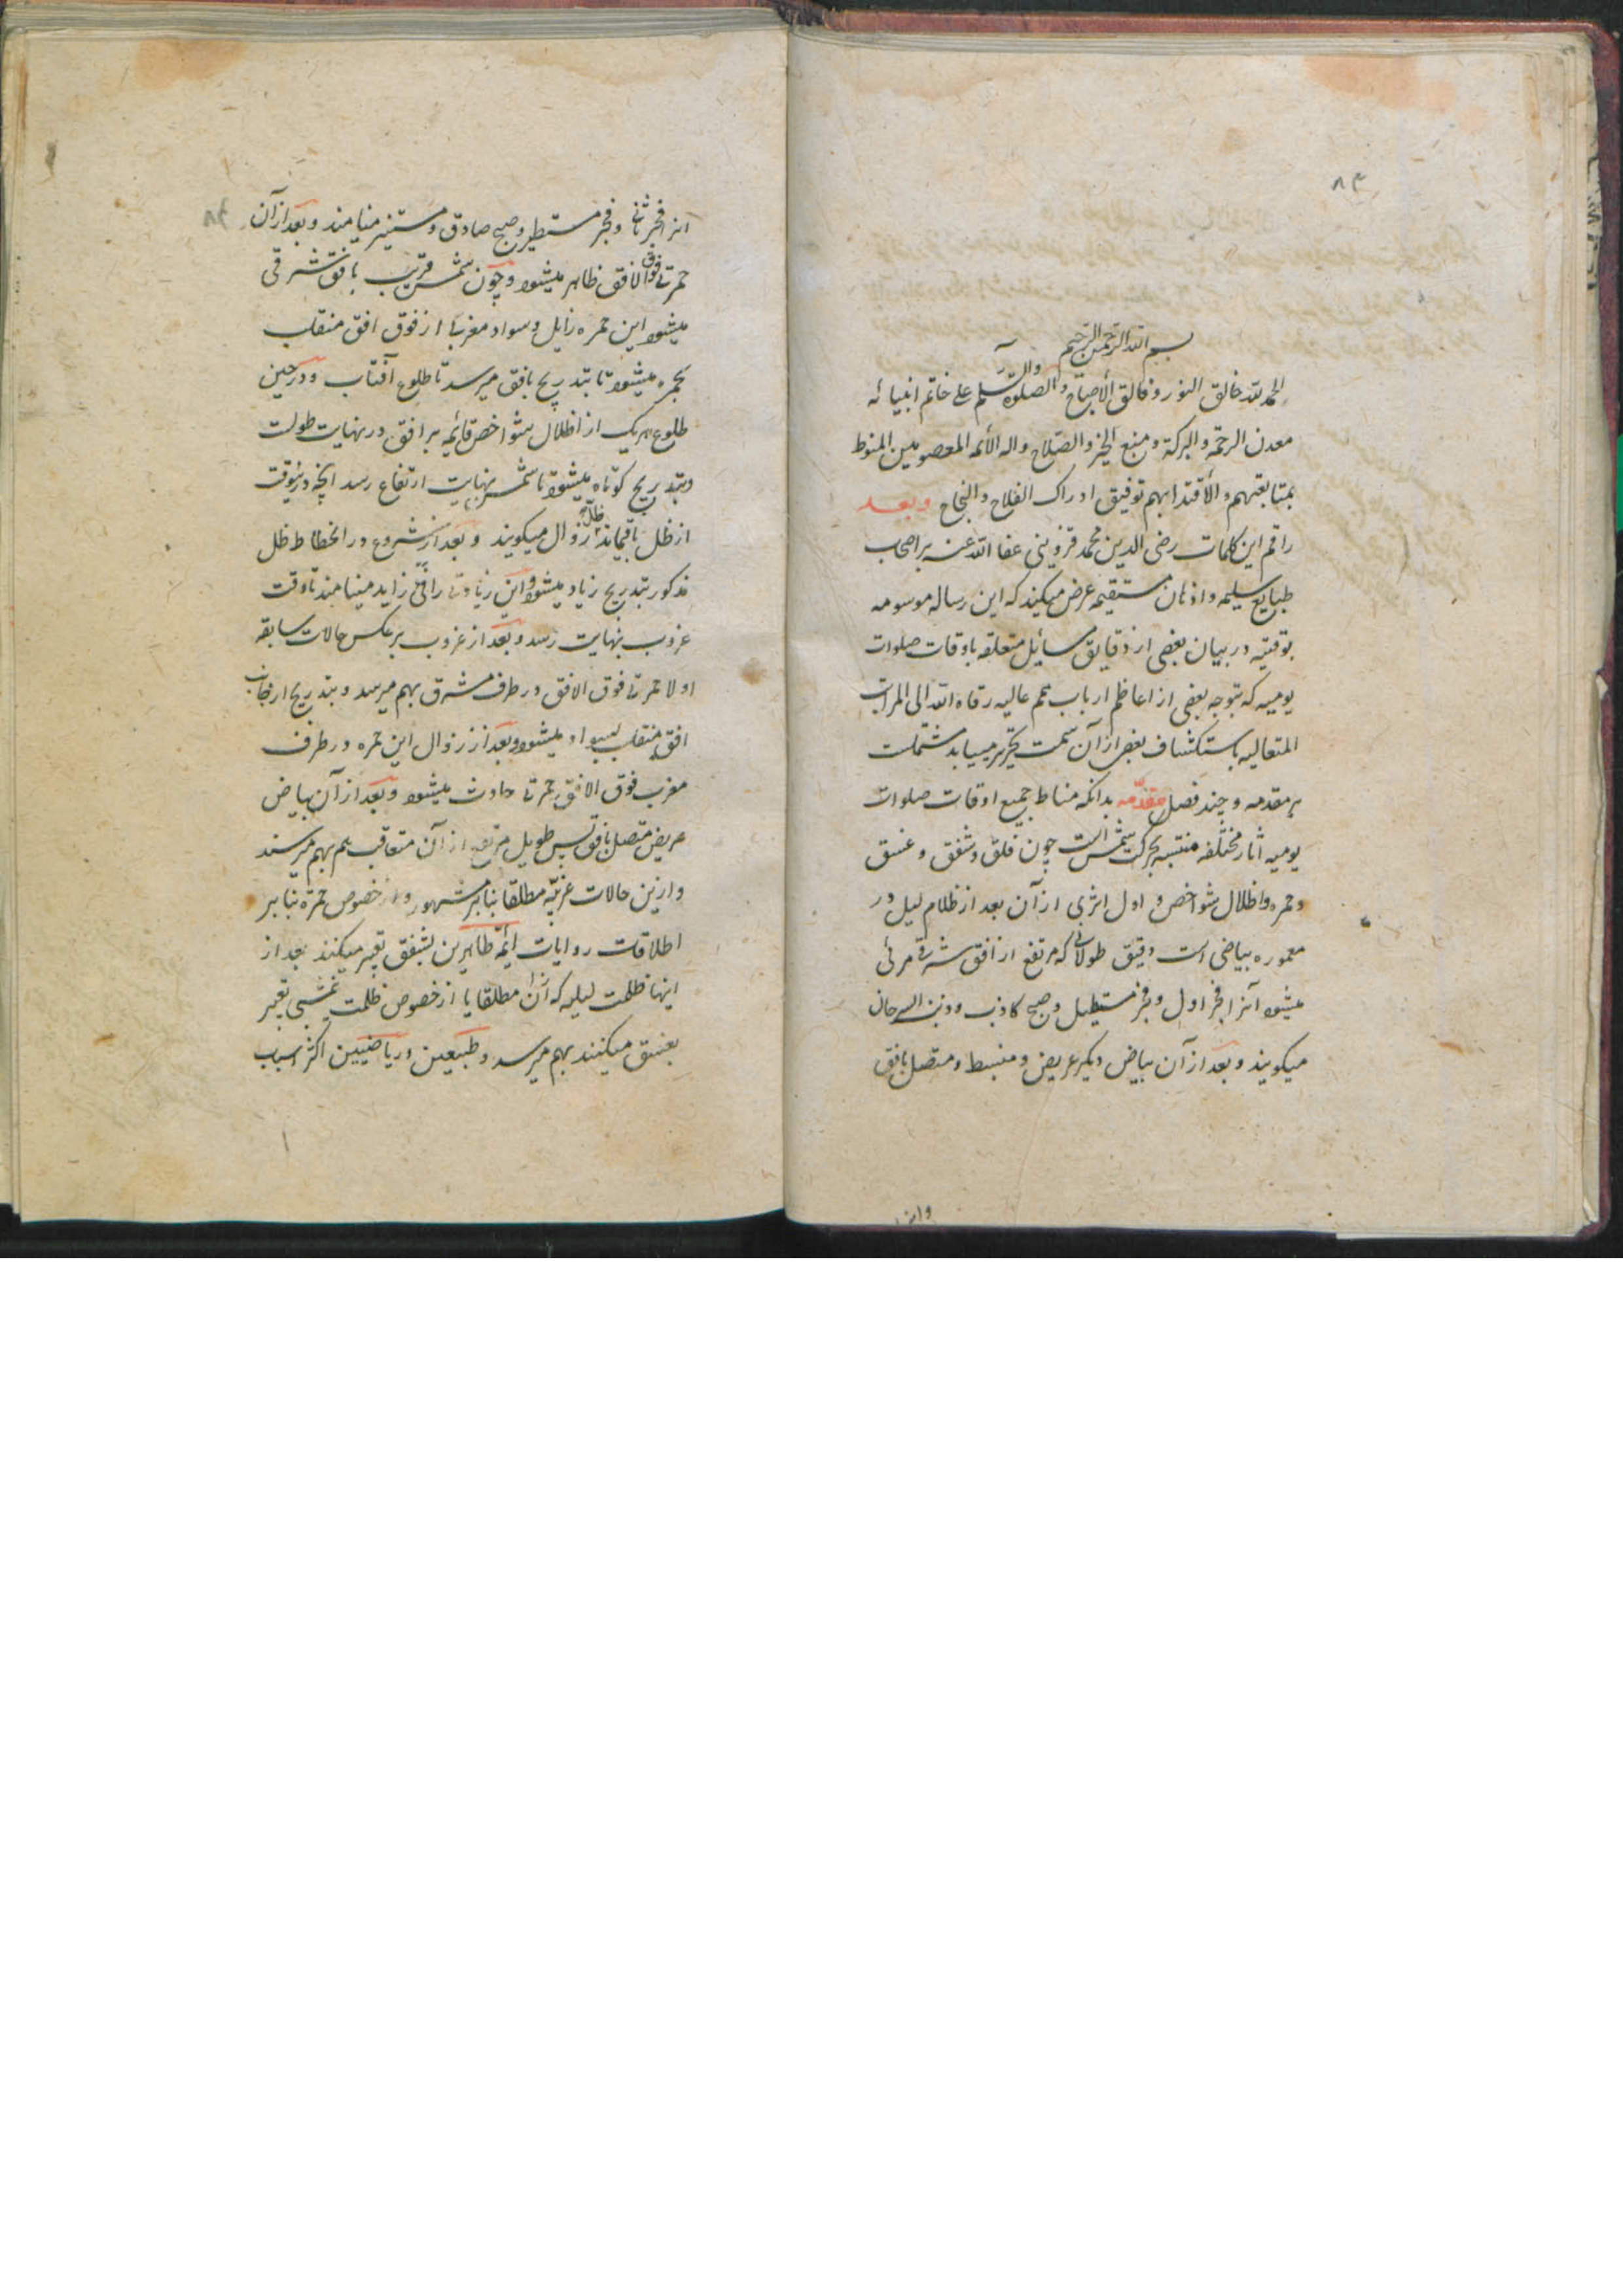 ۸۳
بسم الله الرحمن الرحیم
الحمد لله خالق النور و فالق الأصباح والصلوة والسلم علی خاتم انبیائه
معدن الرحمة والبرکة و منبع الخیر والصلاح واله الأئمه المعصومین المنوط
بمتابعتهم والأقتدا بهم توفیق ادراک الفلاح والنجاح وبعد
راقم این کلمات رضی الدین محمد قزوینی عفا الله عنه بر اصحاب
طبایع سلیمه و اذهان مستقیمه عرض میکند که این رساله موسومه
بوقتیه در بیان بعضی از دقایق مسایل متعلقه باوقات صلوات
یومیه که بتوجه بعضی از اعاظم ارباب همم عالیه رقاه الله الی المراتب
المتعالیه باستکشاف بعضی از آن سمت تحریر مییابد مشتملست
بر مقدمه و چند فصل مقدمه بدانکه مناط جمیع اوقات صلوات
یومیه اثار مختلفه منتسبه بحرکت شمس است چون فلق و شفق و غسق
و حمره و اظلال شواخص و اول اثری از آن بعد از ظلام لیل در
معموره بیاضی است دقیق طولانی که مرتفع از افق شرقی مرئی
میشود آنرا فجر اول و فجر مستطیل و صبح کاذب و ذنب السرحان
میکویند و بعد از آن بیاض دیکر عریض و منبسط و متصل بافق
۸۴
انرا فجر ثانی و فجر مستطیر و صبح صادق و مستنیر مینامند و بعد از آن
حمرتی فوق الافق ظاهر میشود و چون شمس قریب بافق شرقی
میشود این حمره زایل و سواد مغرب از فوق افق منقلب
بحمره میشود تا بتدریج بافق میرسد تا طلوع آفتاب و در حین
طلوع هریک از اظلال شواخص قائمه بر افق در نهایت طولست
و بتدریج کوتاه میشود تا شمس بنهایت ارتفاع رسد انچه درینوقت
از ظل باقیماند انرا ظل زوال میکویند و بعد از شروع در انحطاط ظل
مذکور بتدریج زیاد میشود و این زیادتی را فئ زاید مینامند تا وقت
غروب بنهایت رسد و بعد از غروب برعکس حالات سابقه
اولا حمرتی فوق الافق در طرف مشرق بهم میرسد و بتدریج از جانب
افق منقلب بسواد میشود و بعد از زوال این حمره در طرف
مغرب فوق الافق حمرتی حادث میشود و بعد از آن بیاض
عریض متصل بافق پس طویل مرتفع از آن متعاقب هم بهم میرسند
و ازین حالات غربیه مطلقا بنابر مشهور و از خصوص حمرة بنابر
اطلاقات روایات ائمه طاهرین بشفق تعبیر میکنند بعد از
اینها ظلمت لیلیه که از آن مطلقا یا از خصوص ظلمت نیمشبی تعبیر
بغسق میکنند بهم میرسد و طبیعین و ریاضیین اکثر اسباب